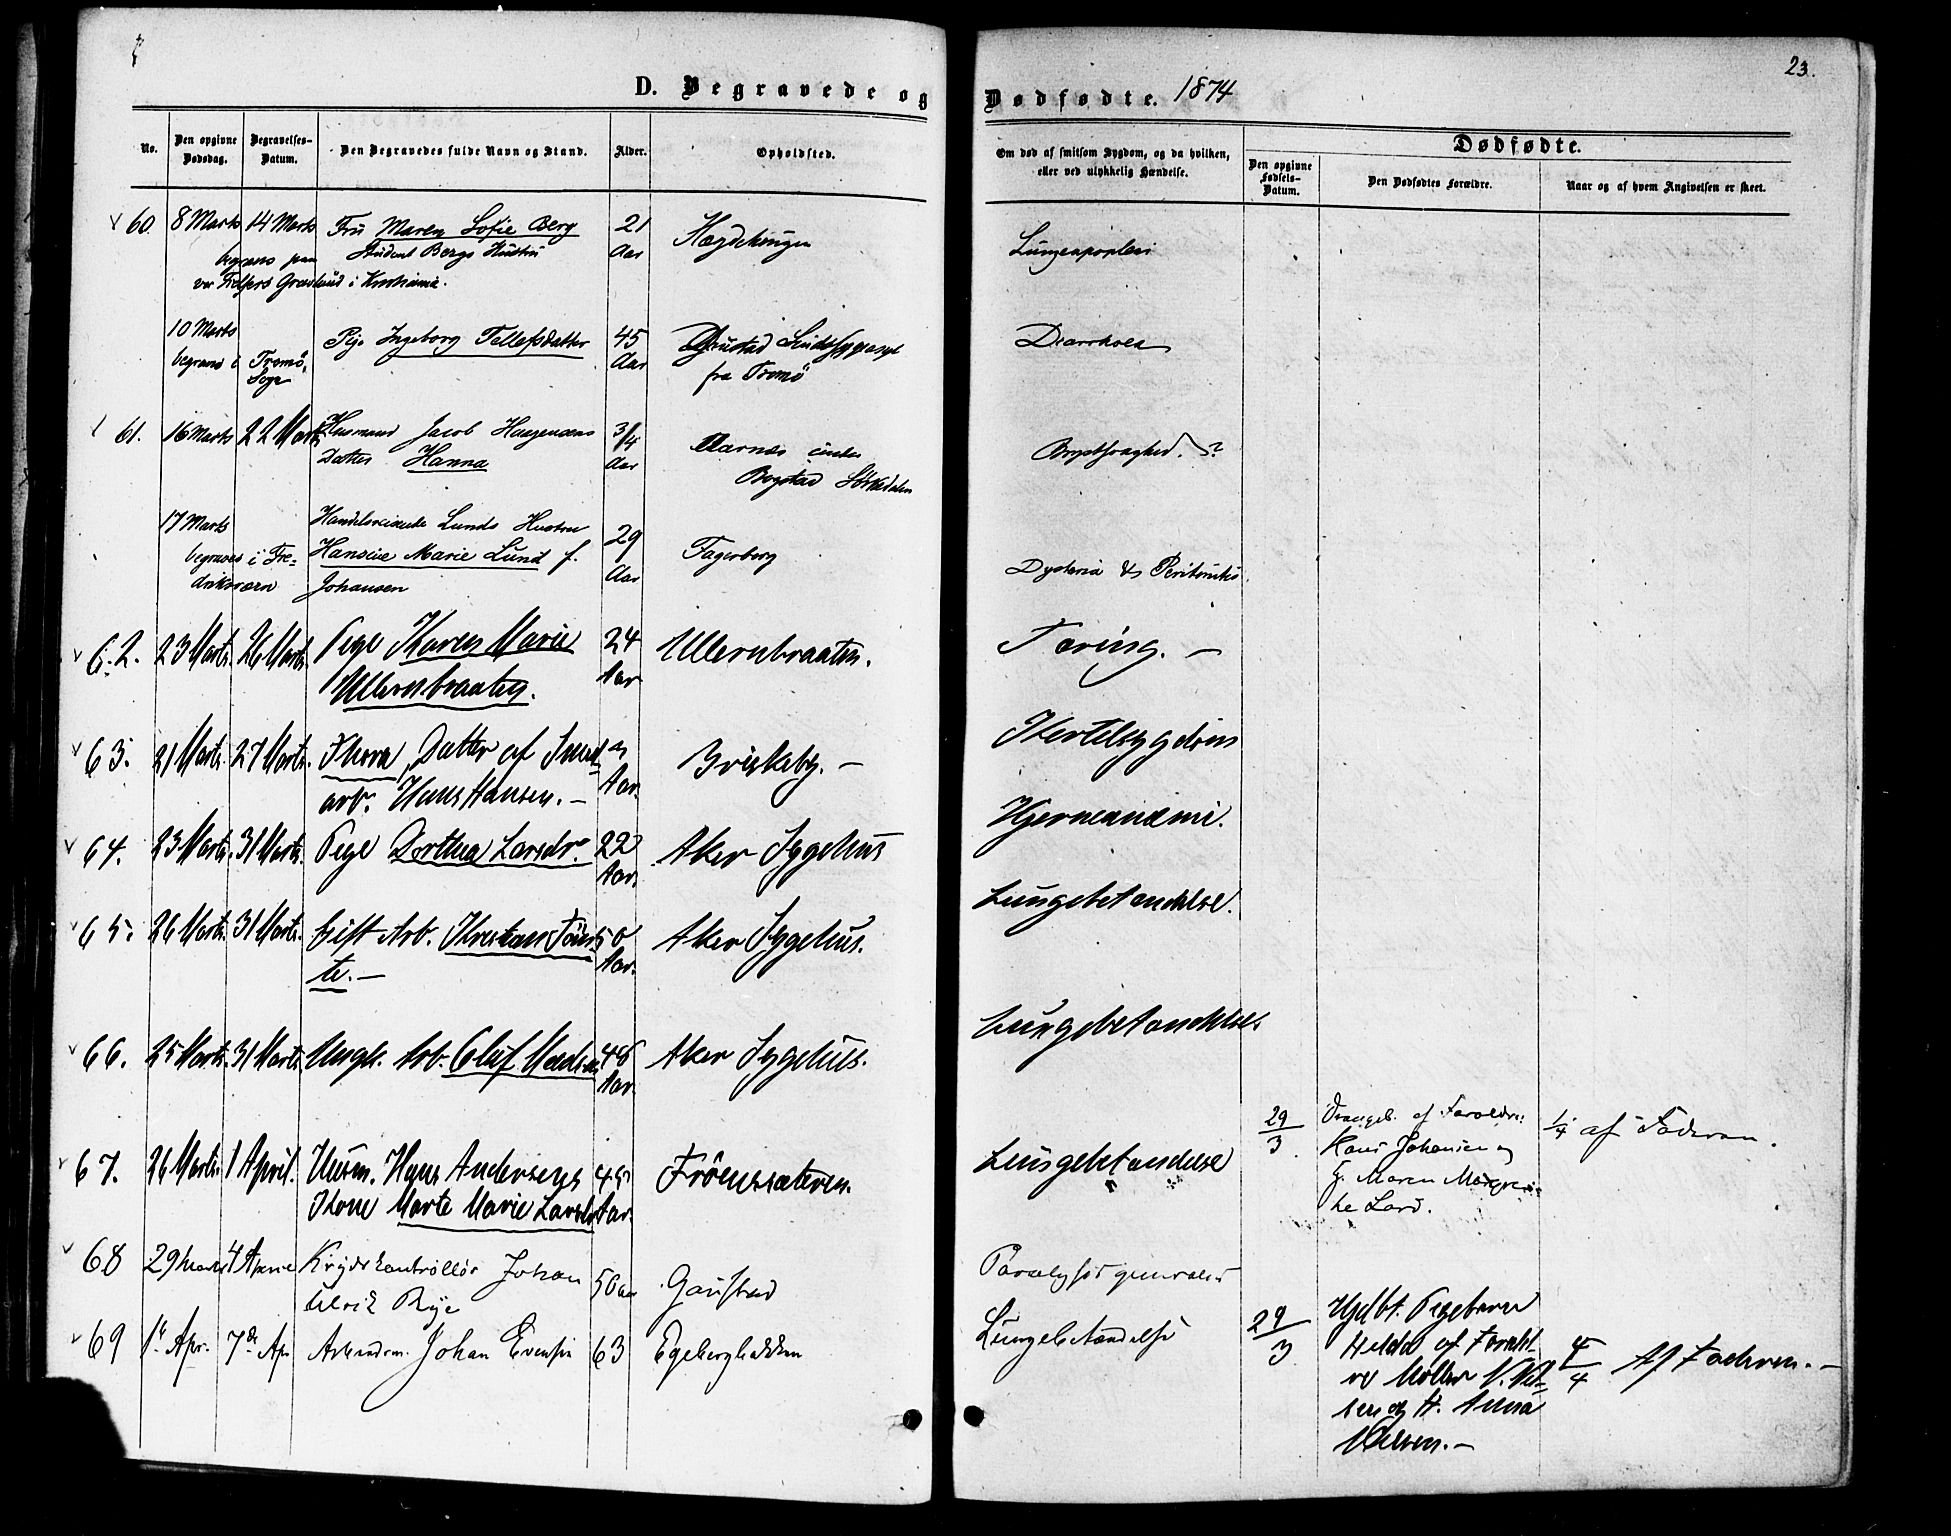 D. Begravede og Dødfødte. 1874
23.
No.
Den opgivne Dødsdag.
Begravelses-Datum.
Den Begravedes fulde Navn og Stand.
Alder.
Opholdsted.
Om død af smitsom Sygdom, og da hvilken, eller ved ulykkelig Hændelse.
Dødfødte.
Den opgivne Fødsels-Datum.
Den Dødfødtes Forældre.
Naar og af hvem Angivelsen er skeet.
60. 8 Marts 14 Marts Fru Maren Sofie Berg 21 Aar
Student Bergs Hustru
i Kristiania.
10 Marts Pige Ingeborg Tellefsdatter 45 Aar
begraves i Tromö Sogn
fra Tromö
Diarrhoea
61. 16 Marts 22 Marts Husmand Jacob Haagensens 3/4 Aar
Datter Hanna
Aarnes under
Bogstad Sörkedalen
Brystsvaghed. ?
17 Marts Lunds Hustru 29 Aar Fagerborg
begraves i Fre-
driksværn
Hansine Marie Lund f.
Johansen
& Peritonitis
62. 23 Marts. 26 Marts. Pige Karen Marie 24 Aar Ullernbraaten. Tæring. —
Ullernbraaten.
63. 21 Marts. 27 Marts. Thora, Datter af Aar. Briskeby. — Kjertelsygdom
arb. Hans Hansen. —
64. 23 Marts. 31 Marts. Pige Dorthea Larsdr. 22 Aar. Aker Sygehus Hjerneanæmi.
65. 26 Marts. 31 Marts. Gift Arb. 50 Aar. Aker Sygehus. Lungebetændelse.
te. —
66. 25 Marts. 31 Marts. Ungk. Arb. Oluf Madsen 48 Aar. Aker Sygehus. Lungebetændelse.
67. 26 Marts. 1 April. Husm. Hans Andersens 45 Aar. Frönssæteren. Lungebetændelse
Kone Marte Marie Larsdr.
29/3. af Forældre:
Hans Johansen og
H. Maren Margre-
the Lard.
1/4 af Faderen.
68 29 Marts 4 April Krydskontrollör Johan 50 aar Gaustad Paralysis generalis
Ulrik Rye
69 1ste Apr. 7de Ap Arbeidsm. Johan Evensen 63 Egebergbakken Lungebetændelse
29/3 Pigebarn
af Foræld-
re Möller N. Niel-
sen og H. Anna
Nielsen. —
4/4 Af Faderen. —